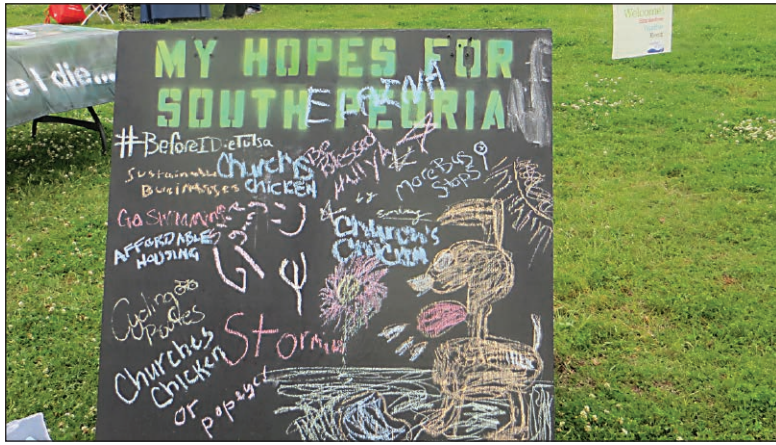 Welcome!
e I die...
MY HOPES FOR
SOUTH PEORIA
ELAINA
#BeforeIDieTulsa
Sustainable
Businesses
Churchs
CHICKEN
Be
Blessed
More Bus
Stops
Go Swimming
AFFORDABLE
HOUSING
by
Church's
CHICKEN
Cycling
Routes
Storm
Churches
Chicken
or popeyes